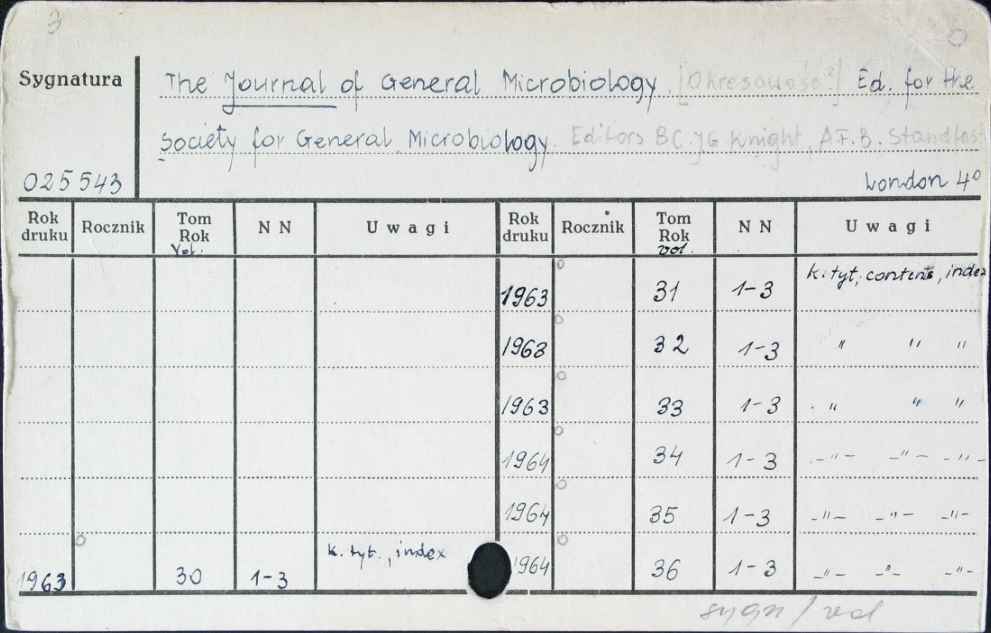 3
Sygnatura
The Journal of General Microbiology. [Okresowość] Ed. for the
Society for General Microbiology. Editors B.C.J.G. Knight, A.F.B. Standfast
025543
London 4°
Rok druku Rocznik Tom Rok Vol. N N Uwagi Rok druku Rocznik Tom Rok vol. N N Uwagi
1963 31 1-3 k. tyt., contents, index
1963 32 1-3 " " "
1963 33 1-3 " " "
1964 34 1-3 -"- -"- -"-
1964 35 1-3 -"- -"- -"-
1963 30 1-3 k. tyt., index 1964 36 1-3 -"- -"- -"-
sygn/red